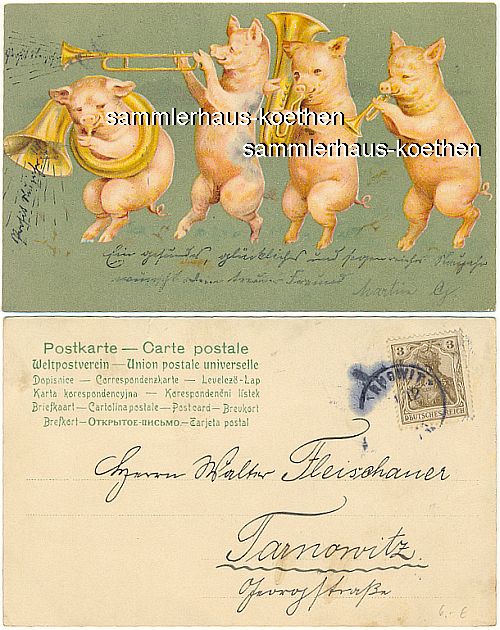 Prosit Neujahr
sammlerhaus-koethen
sammlerhaus-koethen
Prosit Neujahr
Ein gesundes, glückliches und segensreiches Neujahr
wünscht dein treuer Freund
Martin G.
Postkarte — Carte postale
Weltpostverein — Union postale universelle
Dopisnice — Correspondenzkarte — Levelező-Lap
Karta korespondencyjna — Korespondenční lístek
Briefkaart — Cartolina postale — Postcard — Brevkort
Brefkort — ОТКРЫТОЕ-ПИСЬМО — Tarjeta postal
3 3
DEUTSCHES REICH
TARNOWITZ
Herrn Walter Fleischauer
Tarnowitz.
Georgstraße
6.- €